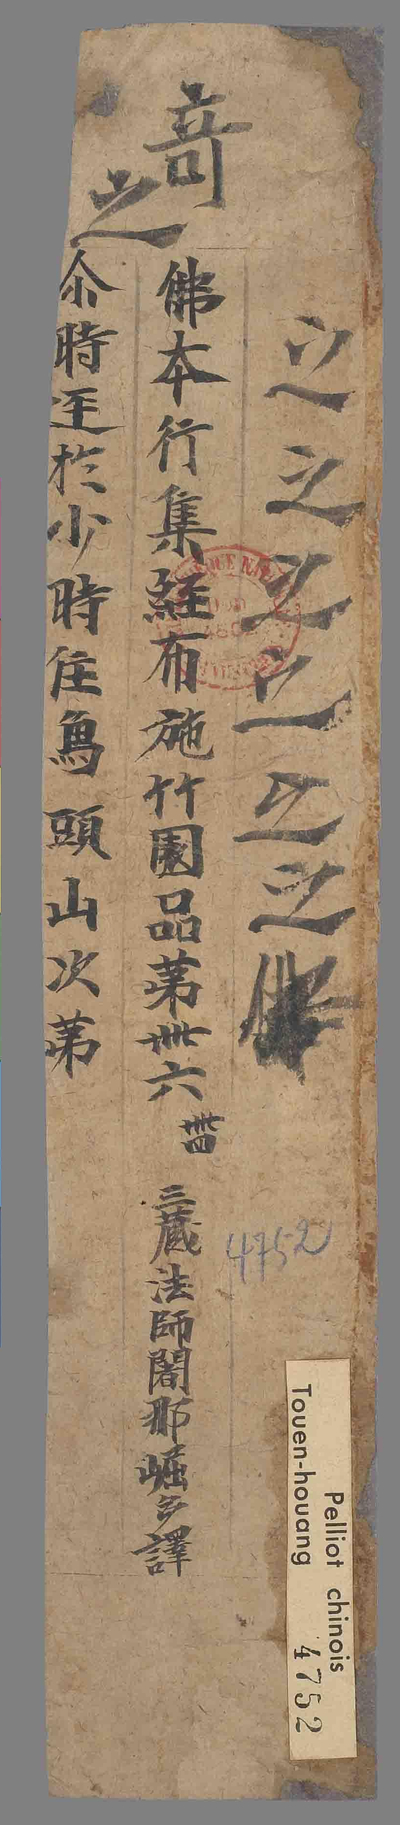 之之之之之之
奇
之
佛本行集經布施竹園品第卌六 卌四 三藏法師闍那崛多譯
尒時於少時住象頭山次第
4752
Pelliot chinois
Touen-houang 4752